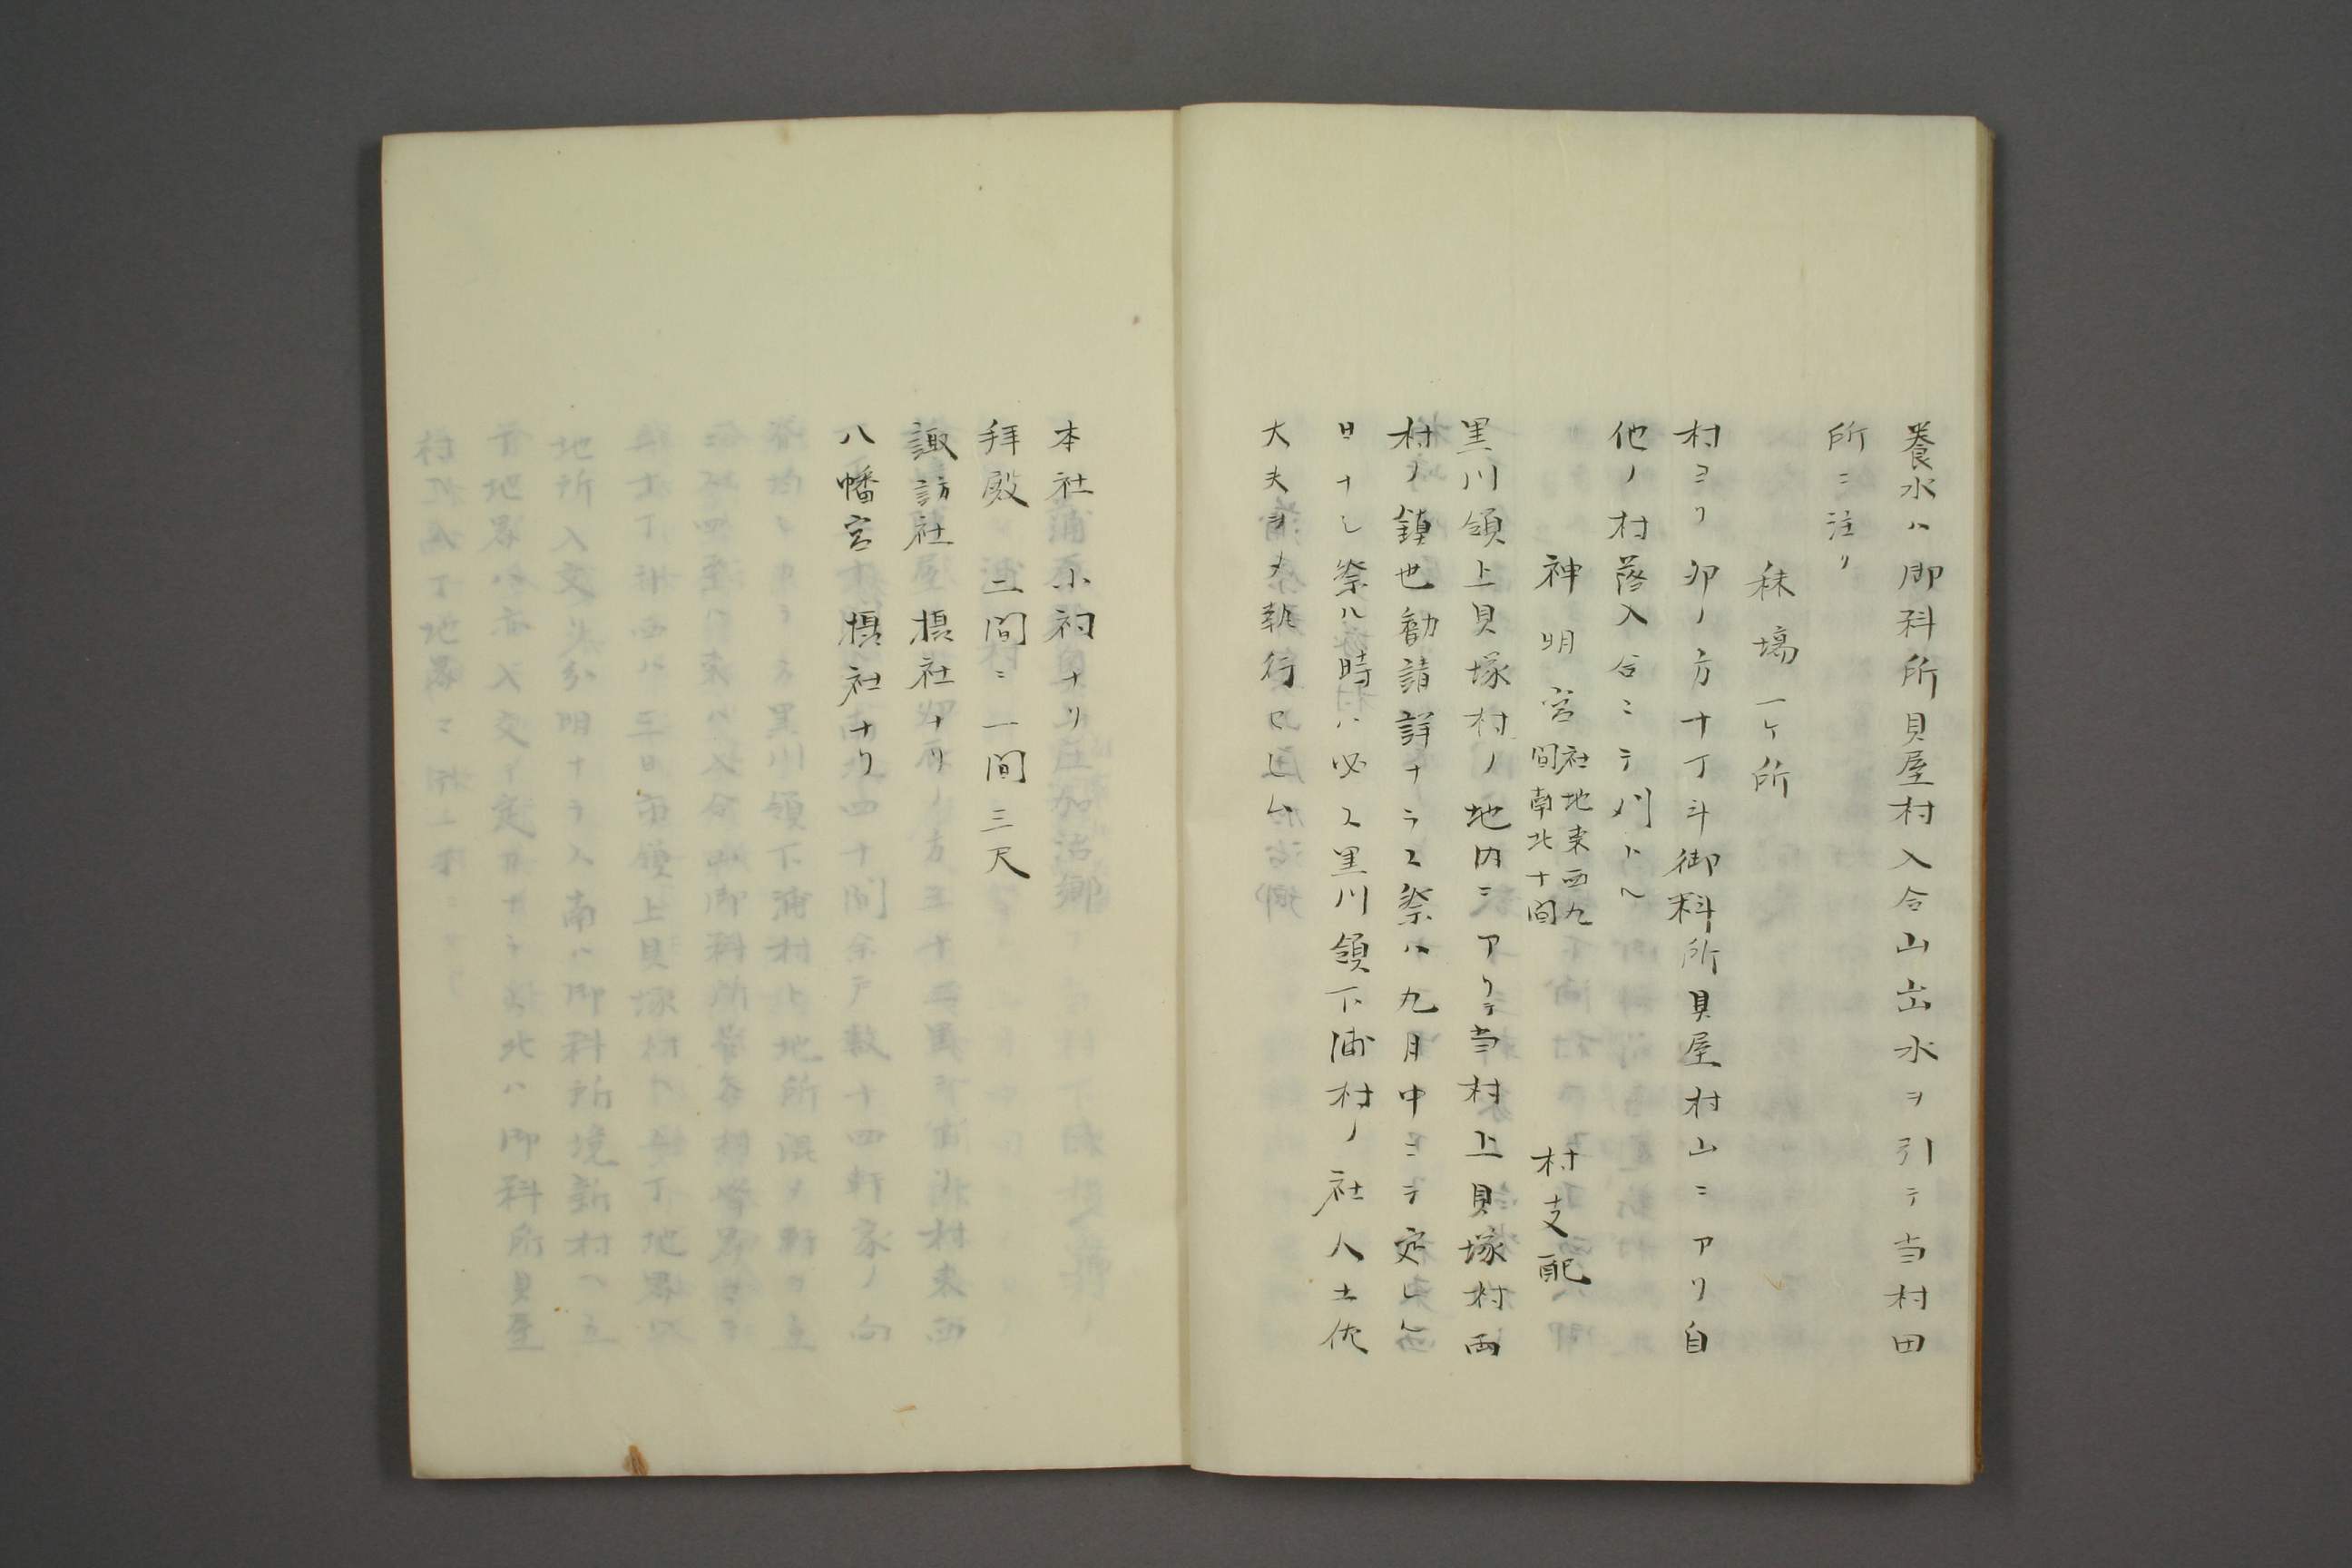 養水ハ御料所貝屋村入合山出水ヲ引テ当村田
所ニ注リ
秣場一ケ所
村ヨリ卯ノ方十丁斗御料所貝屋村山ニアリ自
他ノ村落入合ニテ刈ト〜
神明宮 社地東西九間南北十間 村支配
黒川領上貝塚村ノ地内ニアリテ当村上貝塚村両
村ノ鎮也勧請詳ナラス祭ハ九月中ニテ定レル
日ナシ祭ル時ハ必ス黒川領下浦村ノ社人土佐
大夫ヲ
執行セシム
本社小祠ナリ
拝殿二間ニ一間三尺
諏訪社摂社ナリ
八幡宮摂社ナリ